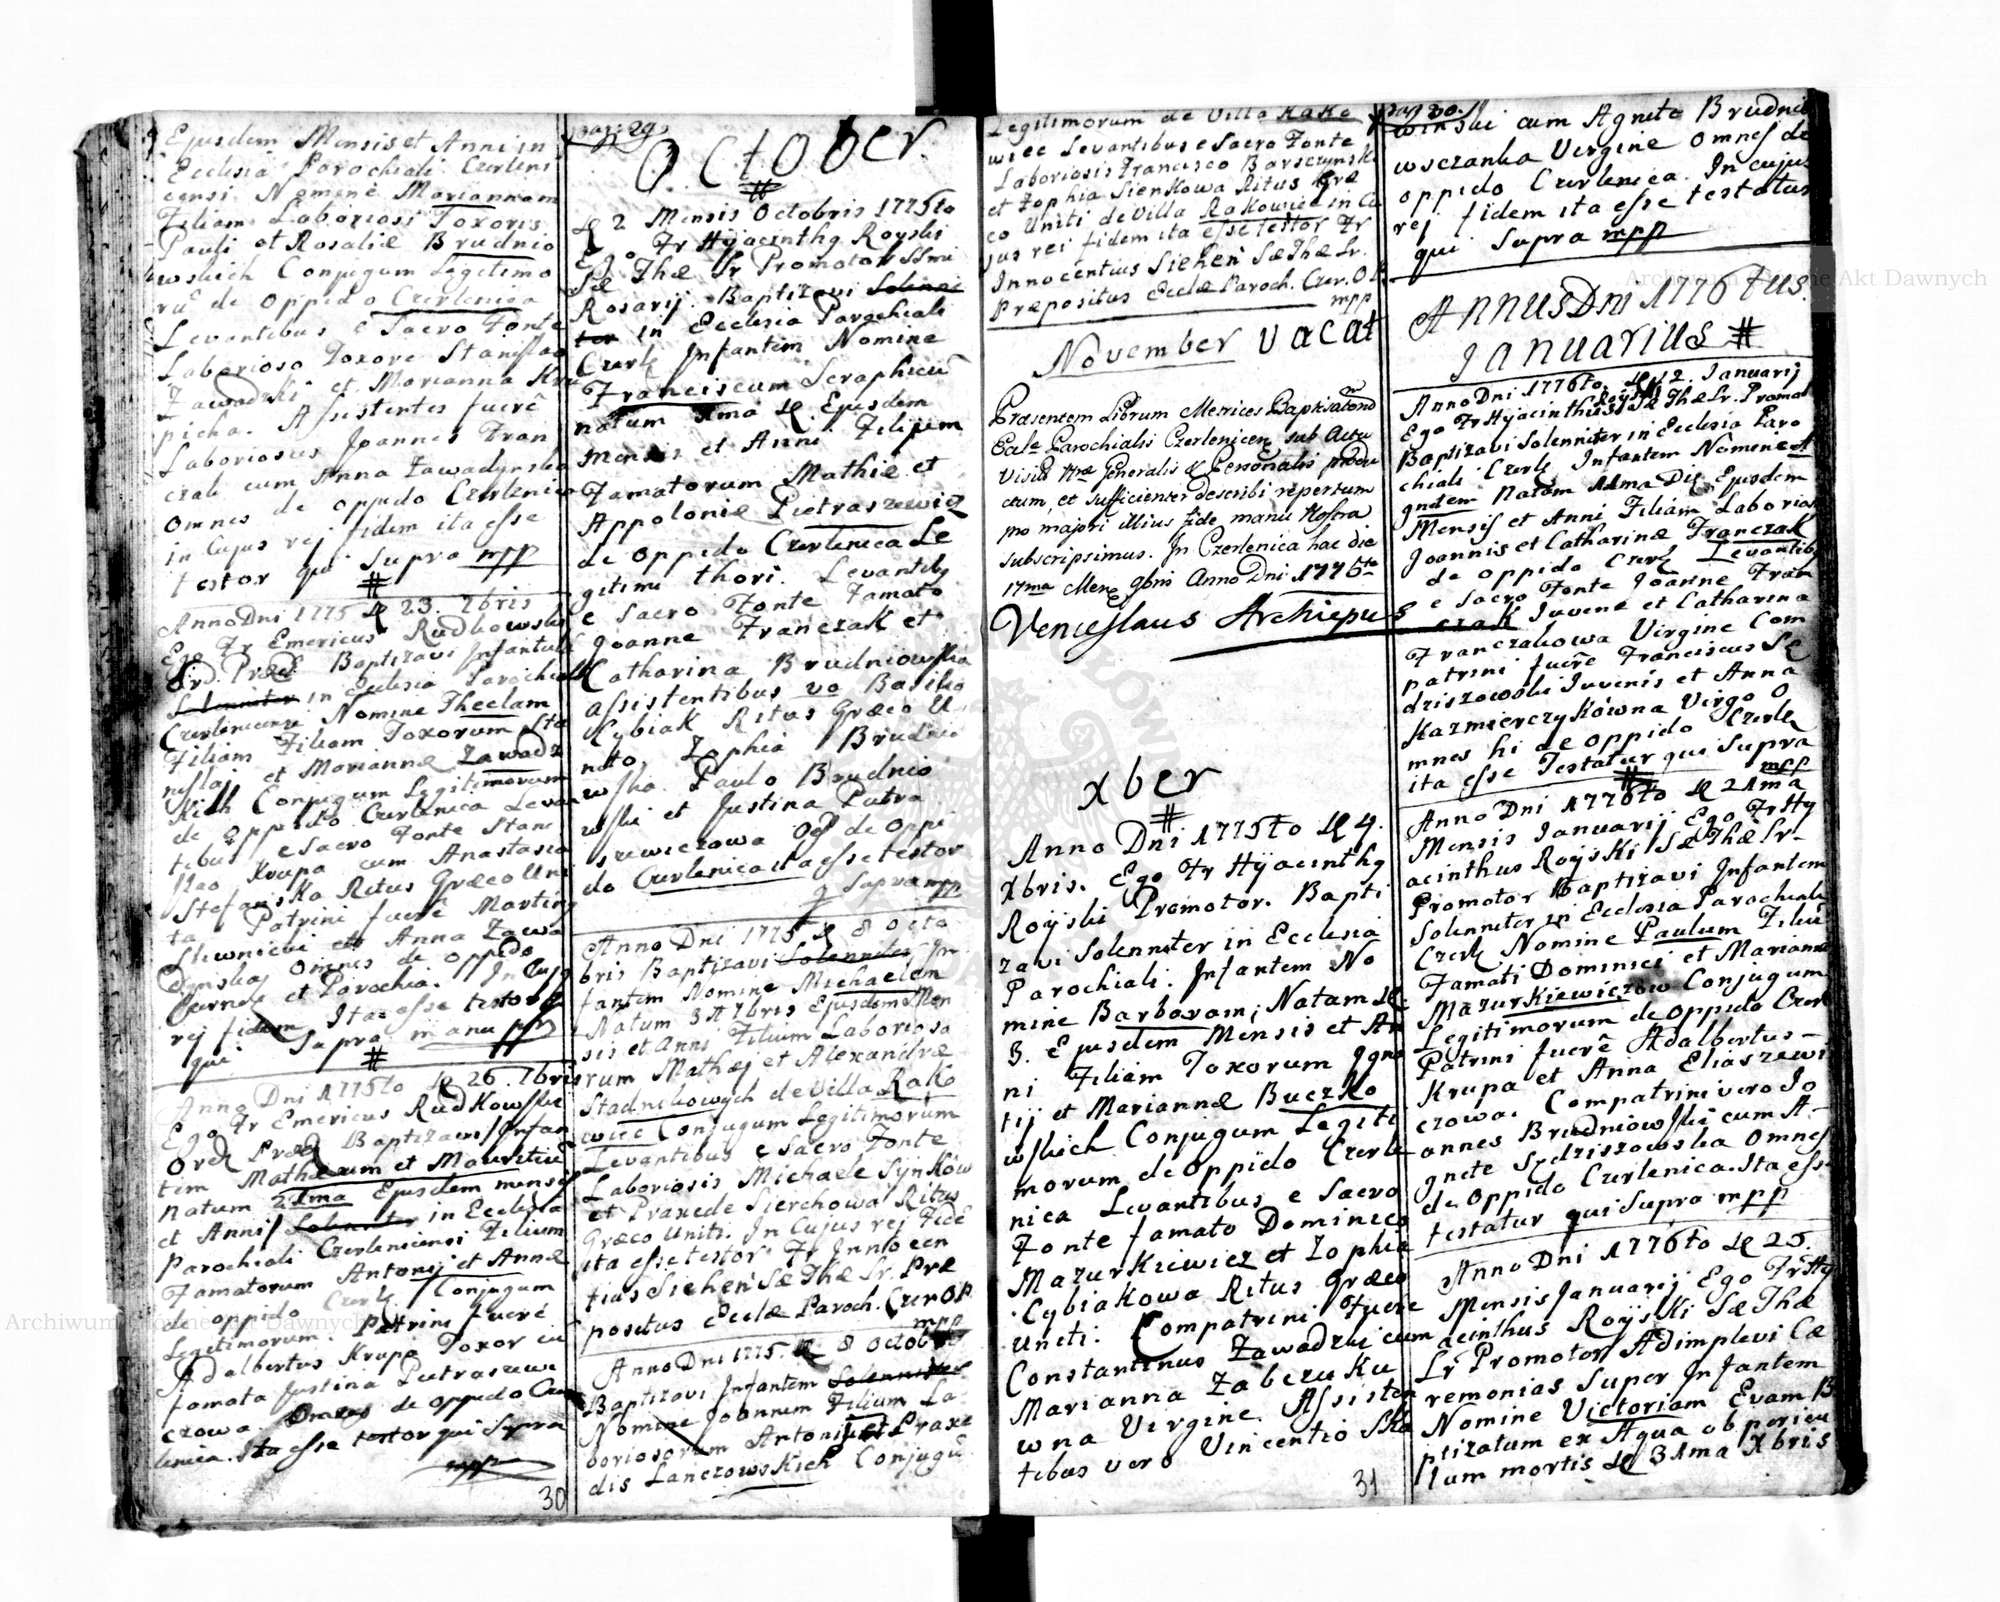 Ejusdem Mensis et Anni in
Ecclesia Parochiali Czerleni
censi Nomine Mariannam
Filiam Laboriosi Toxoris
Pauli et Rosaliæ Brudnio
wskich Conjugum Legitimo
rū de oppido Czerlenica
Levantibus e Sacro Fonte
Laborioso Toxore Stanislao
Zawadzki et Marianna Kru
picha. Assistentes fuerē
Laboriosus Joannes Fran
czak cum Anna Zawadynska
omnes de oppido Czerlenica
in Cujus rej fidem ita esse
testor qui Supra mpp
#
Anno Dni 1775 d 23. 7bris
Ego Fr Emericus Rudkowski
Ord. Præd. Baptizavi Infantem
Solenniter in Ecclesia Parochiali
Czerlenicensi Nomine Theclam
Filiam Filiam Toxorum Sta
nislai et Mariannæ Zawadz
kich Conjugum Legitimorum
de oppido Czerlenica Levan
tibus e Sacro Fonte Stani
slao Krupa cum Anastasia
Stefanska Ritus Græco Uni
ta Patrini fuerē Marting
Sliwnicki et Anna Zawa
dynska Omnes de oppido
et Parochia. In Cujg
rej fidem Ita esse testor
qui Supra manu ppr
#
Anno Dni 1775to d 26. 7bris
Ego Fr Emericus Rudkowski
Ord Præd Baptizavi Infan
tem Mathæum et Mauritiū
natum 21ma Ejusdem mensis
et Anni Solenniter in Ecclesia
Parochiali Czerlenicensi Filium
Famatorum Antonij et Annæ
de oppido Czerl Conjugum
Legitimorum. Patrini fuerē
Adalbertus Krupa Toxor cu
famata Justina Pietraszewi
czowa. Omnes de oppido Czer
lenica. Ita esse testor qui Supra
mpp
30
pag: 29
October.
#
d 2 Mensis Octobris 1775to
Ego Fr Hyjacinthg Royski
Sæ Thæ Lr Promotor SSmi
Rosarij. Baptizavi Solenni
ter in Ecclesia Parochiali
Czerl Infantem Nomine
Franciscum Seraphicū
natum 1ma d Ejusdem
Mensis et Anni Filium
Famatorum Mathiæ et
Appoloniæ Pietraszewicz
de oppido Czerlenica Le
gitimi thori. Levantibg
e Sacro Fonte Famato
Joanne Franczak et
Catharina Brudniowska
assistentibus vo Basilio
Kybiak Ritus Græco U
nito, Zophia Brudnio
wska. Paulo Brudnio
wski et Justina Pietra
szewiczowa Oēs de oppi
do Czerlenica ita esse testor
q Supra mpp
Anno Dni 1775 d 8 Octo
bris Baptizavi Solenniter In
fantem Nomine Michaelem
Natum 3 A 7bris Ejusdem Men
sis et Anni Filium Laborioso
rum Mathæj et Alexandræ
Stadnikowych de Villa Rako
wiec Conjugum Legitimorum
Levantibus e Sacro Fonte
Laboriosis Michaele Synków
et Praxede Sierchowa Ritus
Græco Uniti. In Cujus rej Fidē
ita esse testor Fr Innocen
tius Siehen Sæ Thæ Lr. Præ
positus Ecclæ Paroch. Czer OP
mpp
Anno Dni 1775. d 8 octobris
Baptizavi Infantem Solenniter
Nomine Joannem Filium La
boriosorum Antonij et Praxe
dis Lanczowskich Conjugū
Legitimorum de Villa Rako
wiec Levantibus e Sacro Fonte
Laboriosis Francisco Barszczynski
et Zophia Sienkowa Ritus Græ
co Uniti de Villa Rakowiec in Cu
jus rei fidem ita esse testor Fr
Innocentius Siehen Sæ Thæ Lr.
Præpositus Ecclæ Paroch. Czer. O P.
mpp
November vacat
Præsentem Librum Metrices Baptisatorū
Ecalæ Parochialis Czerlenicen sub Actu
Visitis Nræ Generalis & Personalis produ
ctum, et sufficienter describi repertum
pro majori illius fide manu Nostra
subscripsimus. In Czerlenica hac die
17ma Mens 9bris Anno Dni 1775to
Venceslaus Archiepus
xber
#
Anno Dni 1775to d 4.
Xbris. Ego Fr Hÿacinthg
Roÿski Promotor. Bapti
zavi Solenniter in Ecclesia
Parochiali. Infantem No
mine Barbaram; Natam d
3. Ejusdem Mensis et An
ni Filiam Toxorum Igna
tij et Mariannæ Buczko
wskich Conjugum Legiti
morum de oppido Czerle
nica Levantibus e Sacro
Fonte famato Dominico
Mazurkiewicz et Zophia
Cybiakowa Ritus Græco
Uniti. Compatrini fuere
Constantinus Zawadzki cum
Marianna Zabczuku
wna Virgine. Assisten
tibus vero Vincentio Ska
31
pag 30.
winski cum Agnete Brudnio
wsczanka Virgine Omnes de
oppido Czerlenica. In cujus
rej fidem ita esse testatus
qui Supra mpp
Annus Dni 1776tus.
Januarius #
Anno Dni 1776to. d 12. Januarij
Ego Fr Hyjacinthus Royski Sæ Thæ Lr. Promot
Baptizavi Solenniter in Ecclesia Paro
chiali Czerl Infantem Nomine A
gnetem Natam 11ma Die Ejusdem
Mensis et Anni Filiam Laborios
Joannis et Catharinæ Franczak
de oppido Czerl Levantibg
e Sacro Fonte Joanne Fran
czak Juvene et Catharina
Franczakowa Virgine Com
patrini fuerē Franciscus Sę
dziszowski Juvenis et Anna
Kazmierczykówna Virgo O
mnes hi de oppido Czerl
ita esse Testatur qui Supra
mpp
#
Anno Dni 1776to d 21ma
Mensis Januarij Ego Fr Hy
acinthus Roÿski Sæ Thæ Lr
Promotor Baptizavi Infantem
Solenniter in Ecclesia Parochiali
Czerl Nomine Paulum Filiū
Famati Dominici et Mariannæ
Mazurkiewiczow Conjugum
Legitimorum de oppido Czerl
Patrini fuerē Adalbertus
Krupa et Anna Eliaszewi
czowa. Compatrini vero Jo
annes Brudniowski cum A
gnete Sędziszowska Omnes
de oppido Czerlenica. Ita esse
testatur qui Supra mpp
Anno Dni 1776to d 25.
Mensis Januarij Ego Fr Hy
acinthus Roÿski Sæ Thæ
Lr Promotor Adimplevi Cæ
remonias Super Infantem
Nomine Victoriam Evam B
ptizatum ex Aqua ob pericu
lum mortis d 31ma Xbris